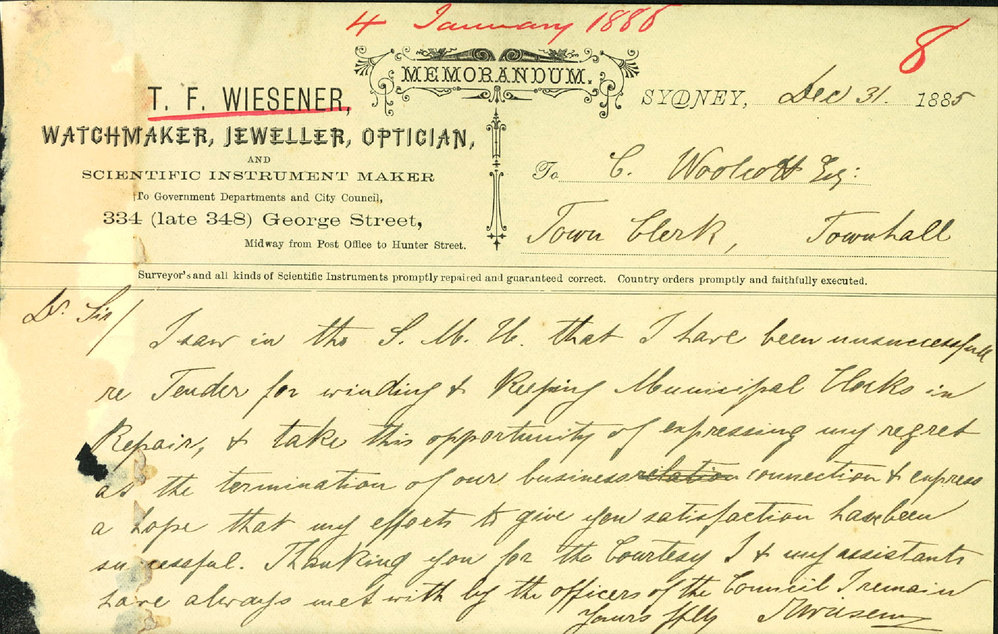 4 January 1886
8
MEMORANDUM.
T. F. WIESENER,
WATCHMAKER, JEWELLER, OPTICIAN,
AND
SCIENTIFIC INSTRUMENT MAKER
To Government Departments and City Council,
334 (late 348) George Street,
Midway from Post Office to Hunter Street.
SYDNEY, Dec 31. 1885
To C. Woolcott Esq:
Town Clerk, Townhall
Surveyor's and all kinds of Scientific Instruments promptly repaired and guaranteed correct. Country orders promptly and faithfully executed.
Dr. Sir/
I saw in the S. M. H. that I have been unsuccessfull
re Tender for winding & Keeping Municipal Clocks in
Repair, & take this opportunity of expressing my regret
as the termination of our business relation connection & express
a hope that my efforts to give you satisfaction have been
successful. Thanking you for the Courtesy I & my assistants
have always met with by the officers of the Council I remain
Yours ffly TFWiesener